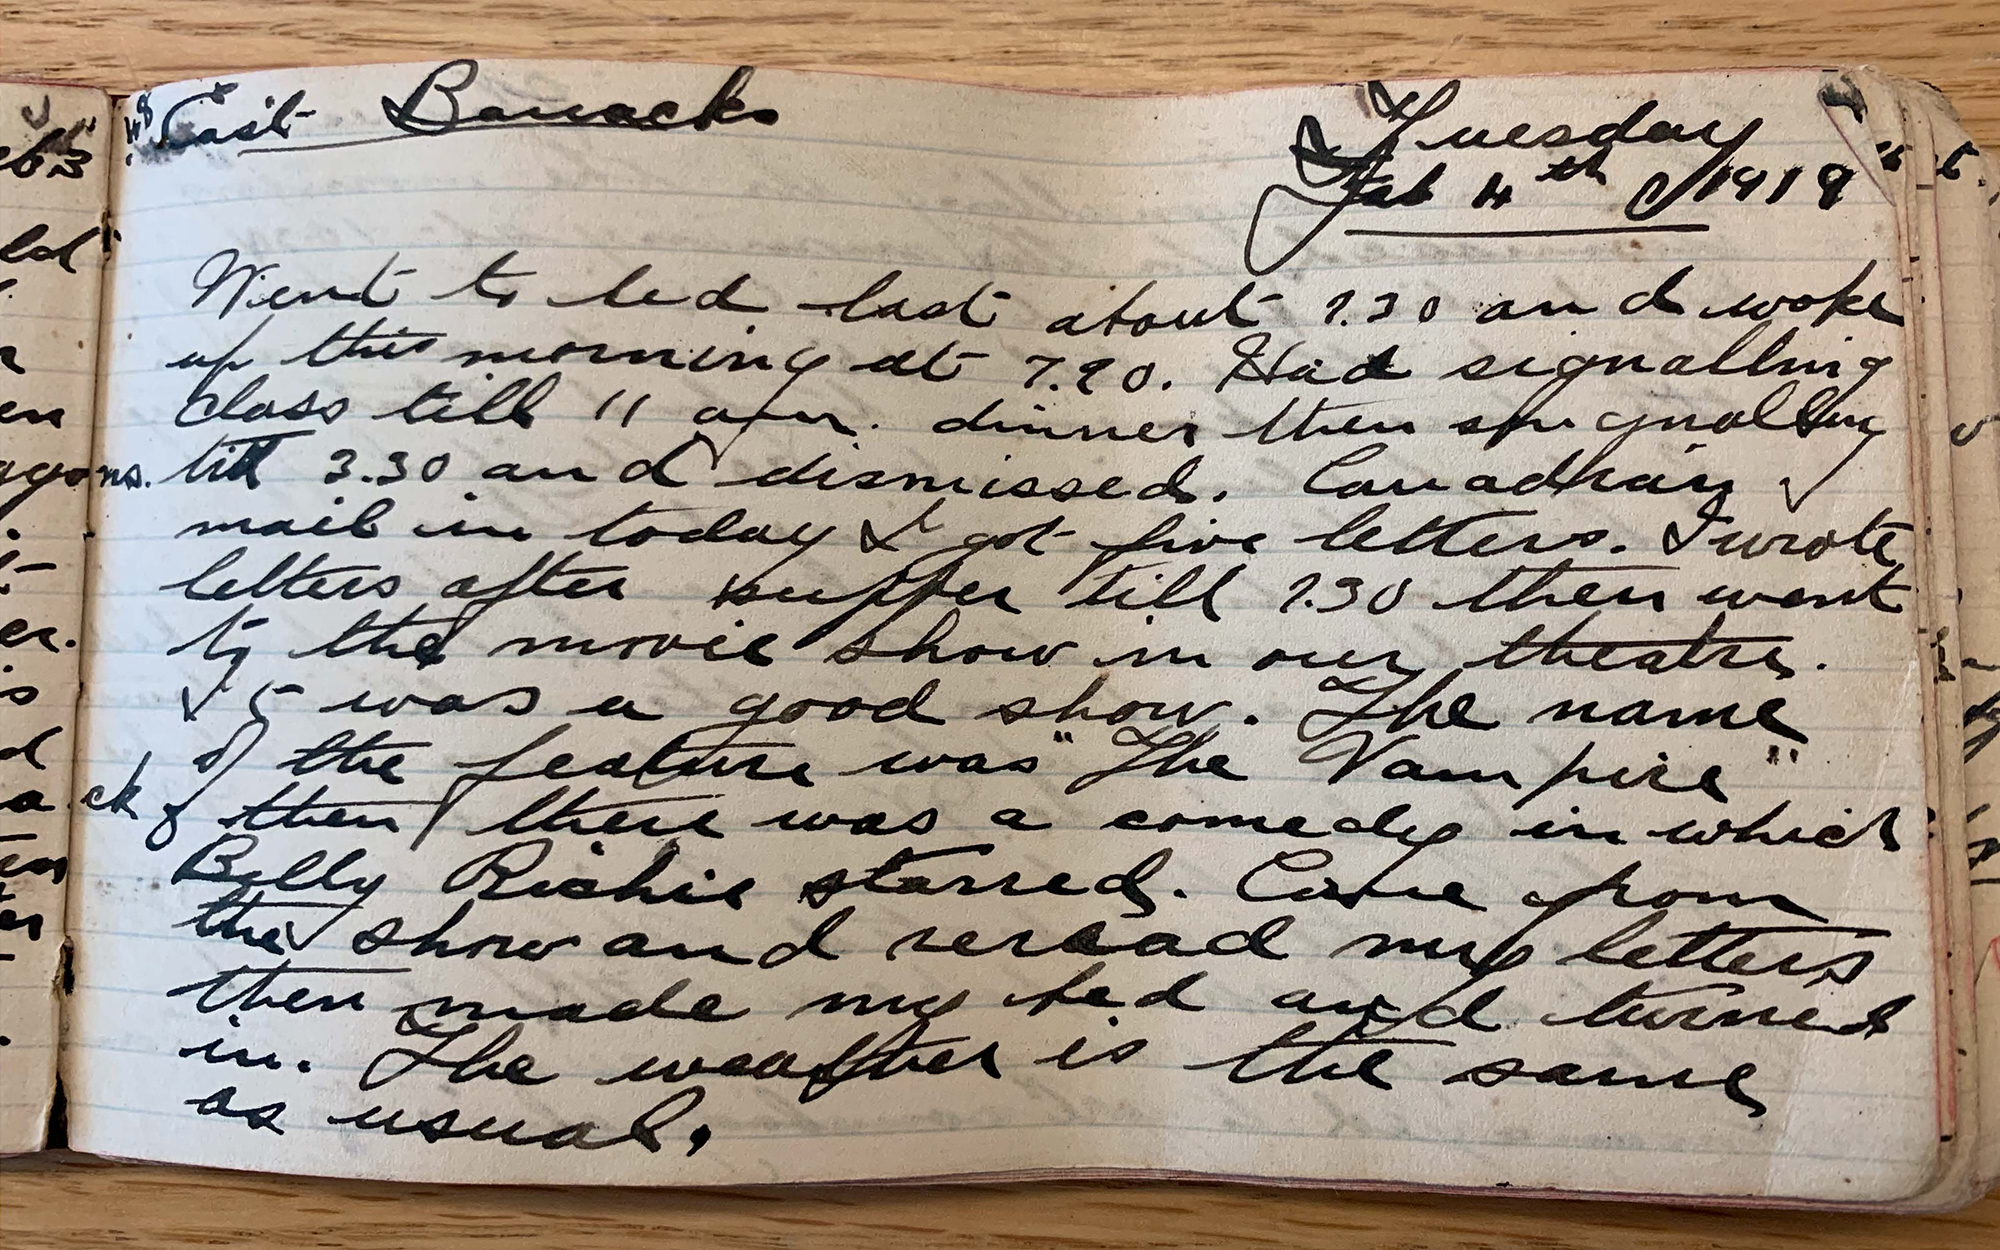 East Barracks
Tuesday
Feb 4th 1919
Went to bed last about 9.30 and woke
up this morning at 7.20. Had signalling
class till 11 am. dinner then signalling
till 3.30 and dismissed. Canadian
mail in today I got five letters. I wrote
letters after supper till 7.30 then went
to the movie show in our theatre.
It was a good show. The name
of the feature was "The Vampire"
then there was a comedy in which
Billy Richie starred. Came from
the show and reread my letters
then made my bed and turned
in. The weather is the same
as usual.